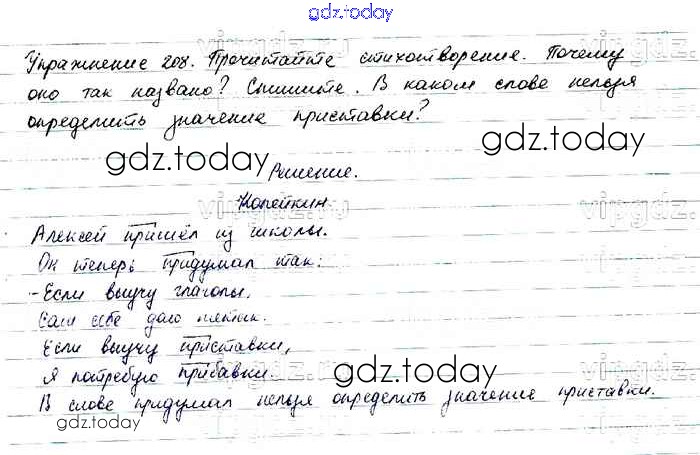 gdz.today
Упражнение 208. Прочитайте стихотворение. Почему
оно так названо? Спишите. В каком слове нельзя
определить значение приставки?
gdz.today
gdz.today
Решение.
Копейкин.
Алексей пришёл из школы.
Он теперь придумал так:
-Если выучу глаголы,
Сам себе даю пятак.
Если выучу приставки,
Я потребую прибавки.
gdz.today
В слове придумал нельзя определить значение приставки.
gdz.today